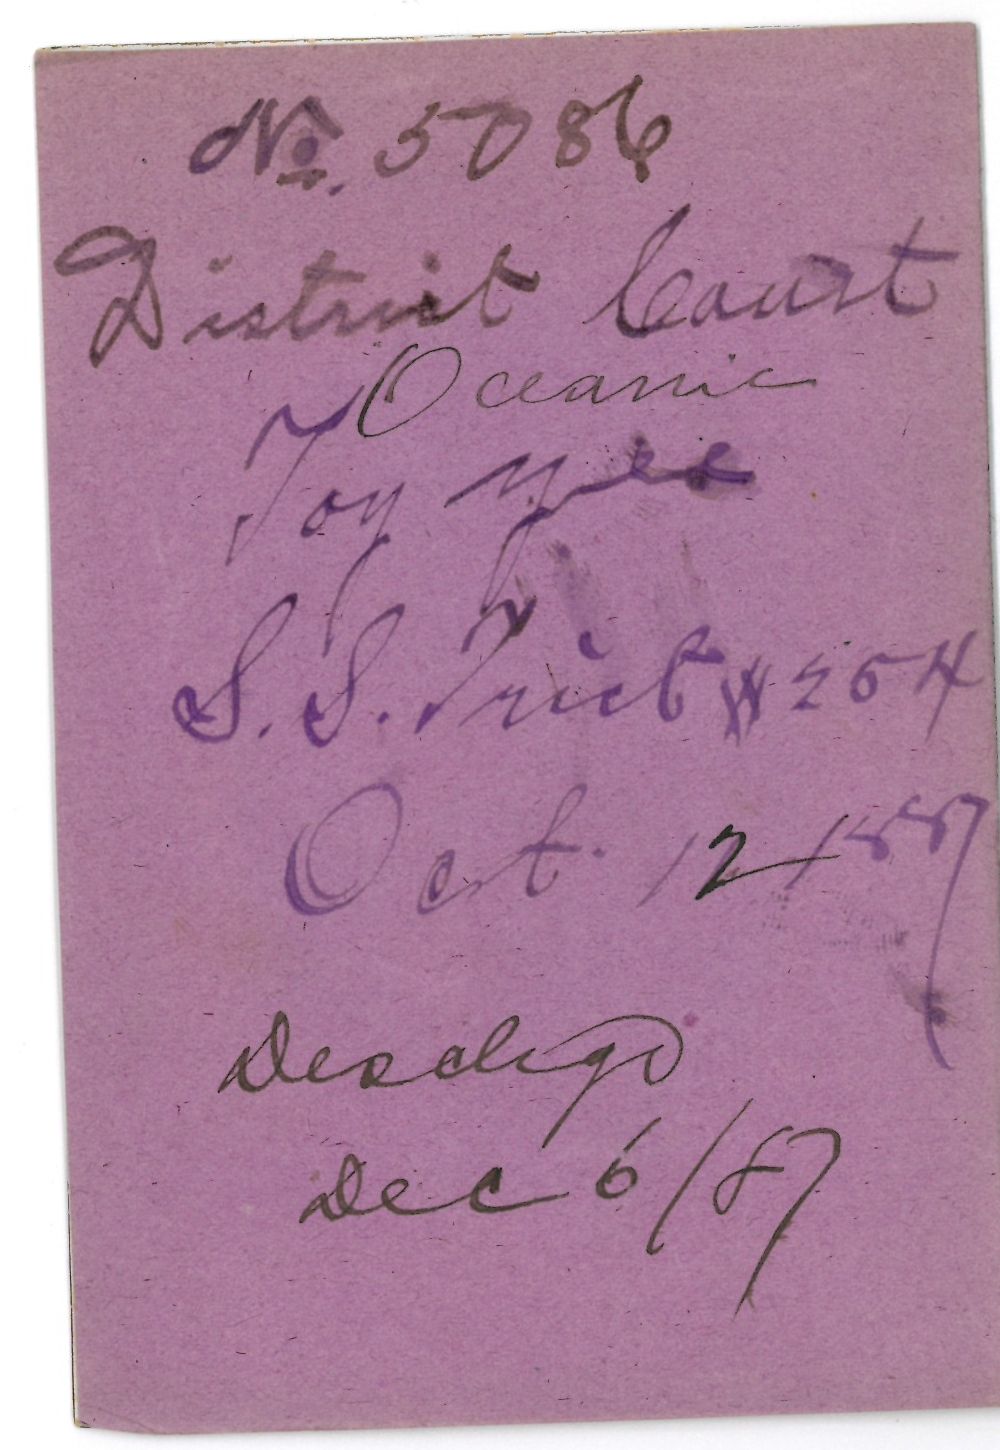 No. 5086
District Court
Oceanic
Toy Yee
S. S. Tict # 254
Oct. 12 1887
Deschgd
Dec 6/87